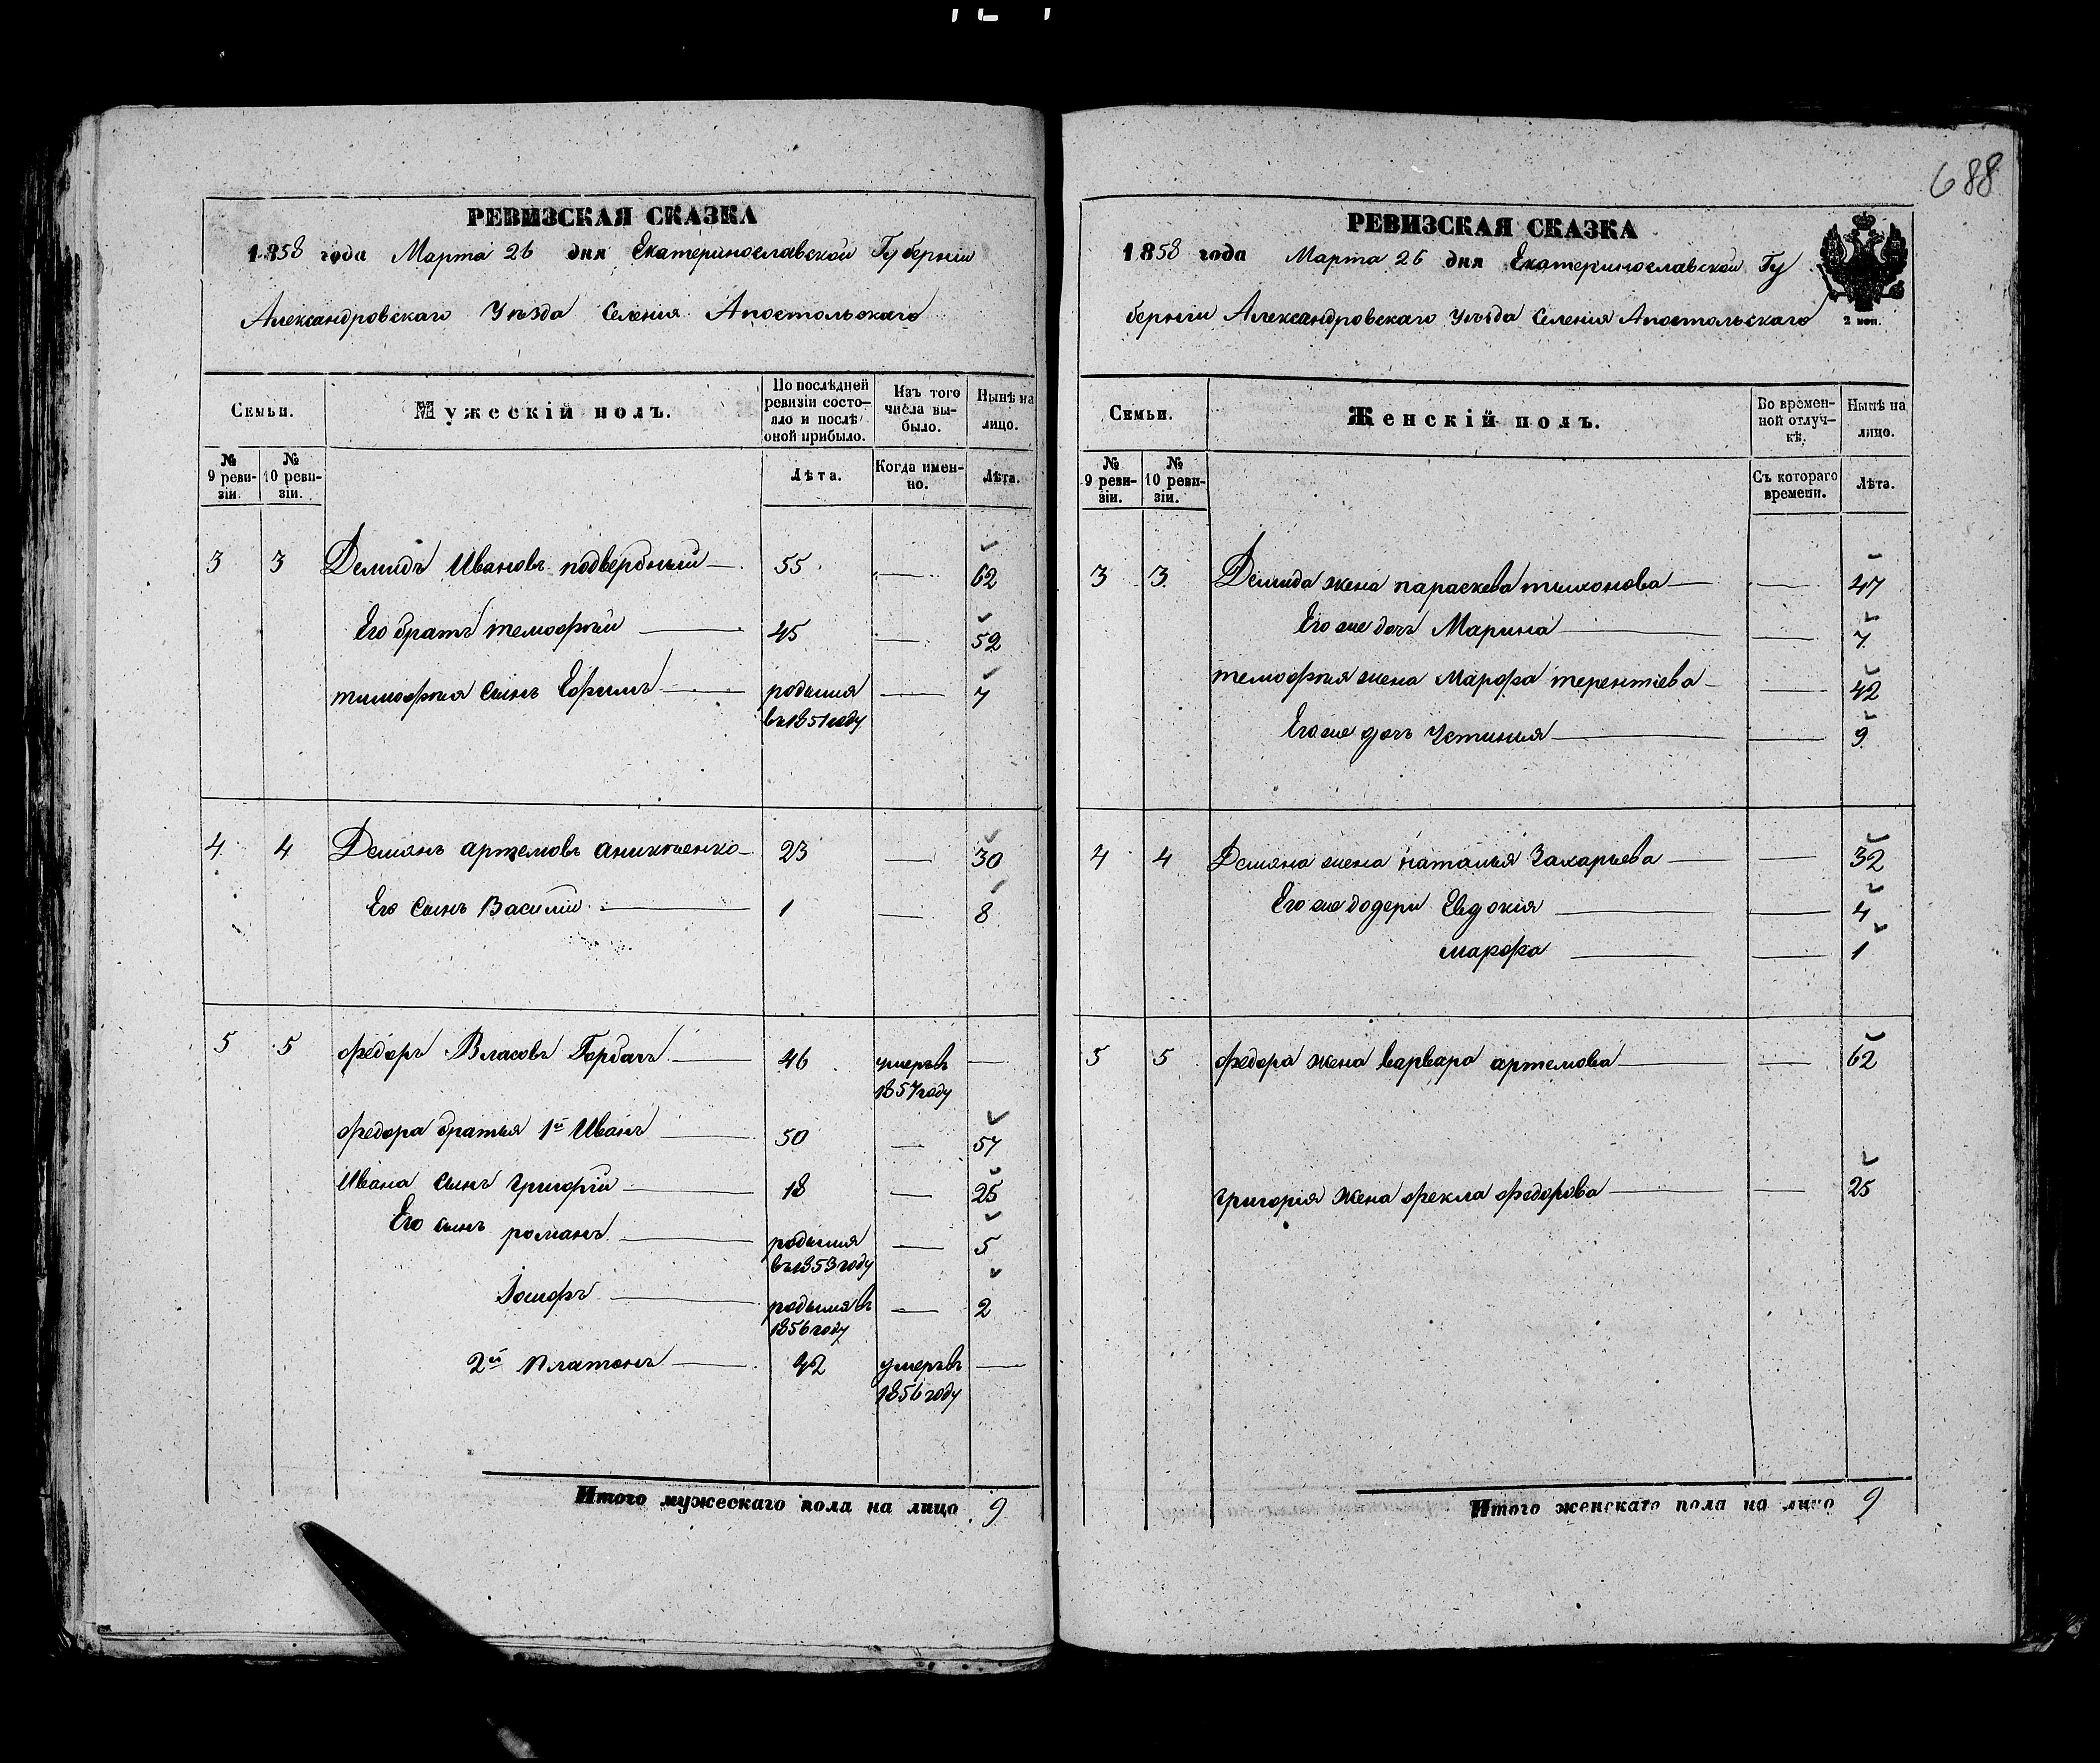 688
РЕВИЗСКАЯ СКАЗКА
1858 года Марта 26 дня Екатеринославской Губернiи
Александровскаго Уѣзда Селенiя Апостольскаго
Семьи.
Мужескiй полъ.
По послѣдней ревизiи состо-
яло и послѣ
оной прибыло.
Изъ того
числа вы-
было.
Нынѣ на
лицо.
№
9 реви-
зiи.
№
10 реви-
зiи.
Лѣта.
Когда имен-
но.
Лѣта.
3 3 Демидъ Ивановъ подвербный 55 — 62
Его братъ темофѣй 45 — 52
тимофѣя сынъ Ефимъ родился — 7
въ 1851 году
4 4 Демянъ артемовъ аникѣенко 23 — 30
Его сынъ Василiй 1 — 8
5 5 федоръ Власовъ Горбачъ 46 умеръ въ —
1857 году
федора братья 1й Иванъ 50 — 57
Ивана сынъ григорiй 18 — 25
Его сынъ романъ родился — 5
въ 1853 году
Iосифъ родился въ — 2
1856 году
2й Платонъ 42 умеръ въ —
1856 году
Итого мужескаго пола на лицо 9
РЕВИЗСКАЯ СКАЗКА
1858 года Марта 26 дня Екатеринославской Гу
бернiи Александровскаго Уѣзда Селенiя Апостольскаго
2 коп.
Семьи.
Женскiй полъ.
Во времен-
ной отлуч-
кѣ.
Нынѣ на
лицо.
№
9 реви-
зiи.
№
10 реви-
зiи.
Съ котораго
времени.
Лѣта.
3 3 Демида жена параскева тихонова — 47
Его же дочь Марина — 7
темофѣя жена Марфа терентiева — 42
Его же дочь Устинья — 9
4 4 Демяна жена наталья Захарьева — 32
Его же дочери Евдокiя — 4
марфа — 1
5 5 федора жена варвара артемова — 62
григорiя жена фекла федорова — 25
Итого женскаго пола на лицо 9